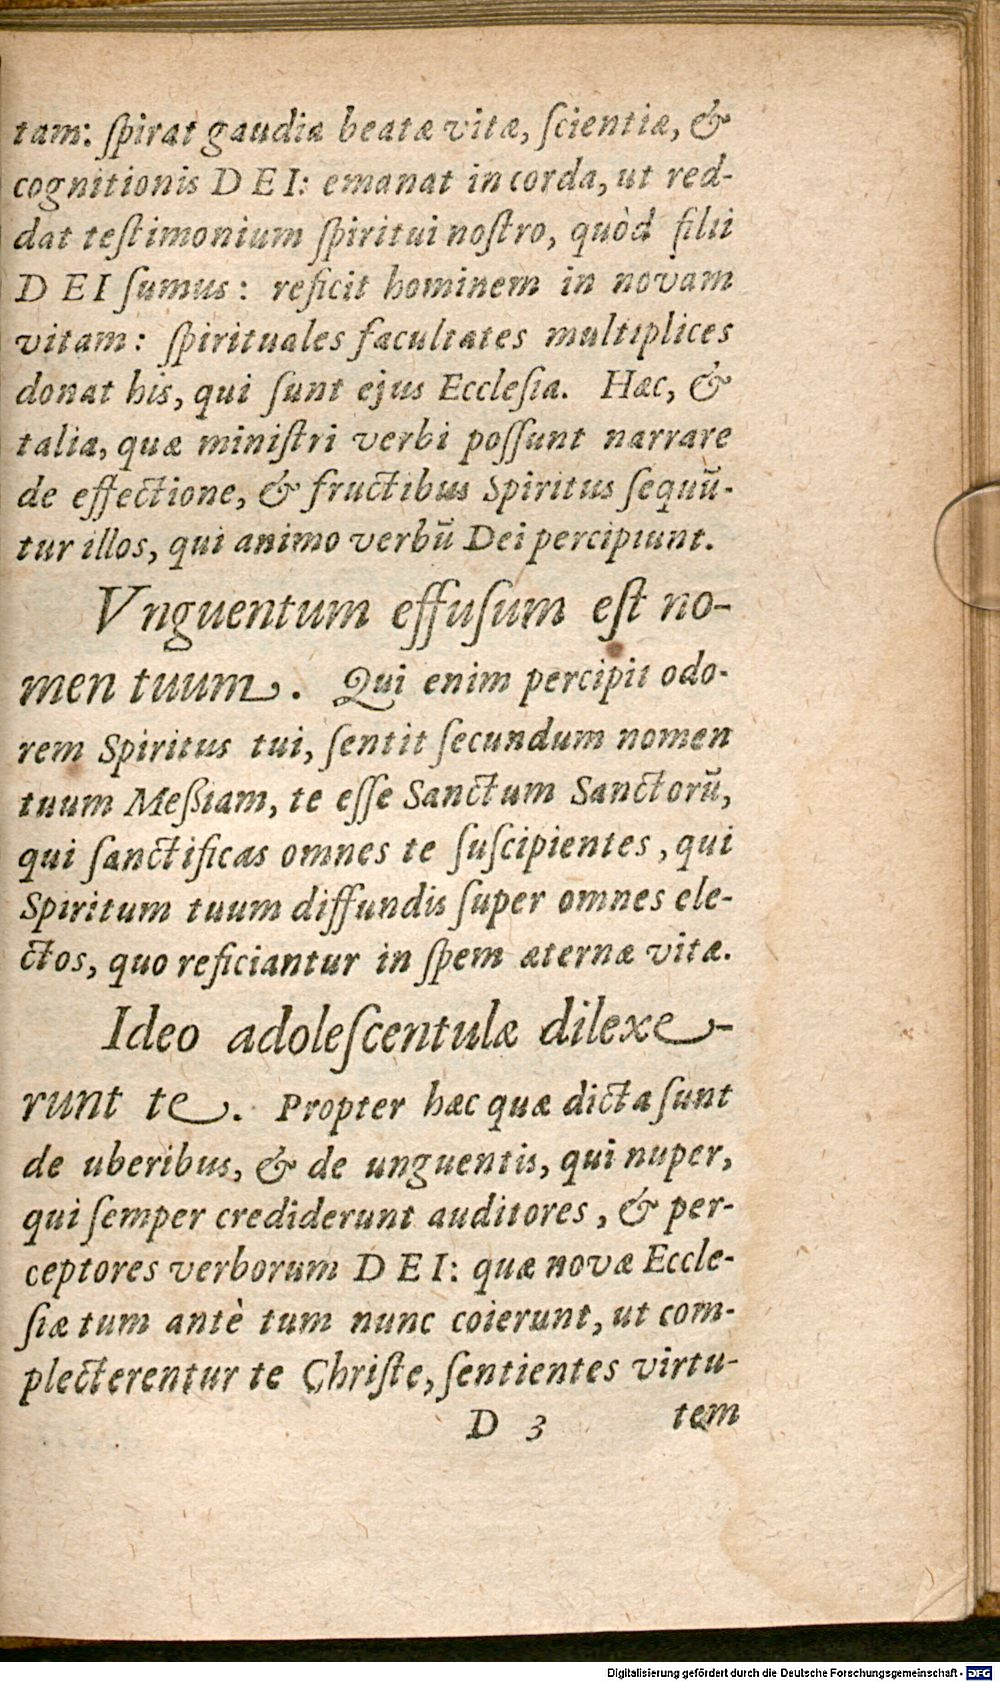 tam: ſpirat gaudia beatæ vitæ, ſcientiæ, &
cognitionis DEI: emanat in corda, ut red-
dat teſtimonium ſpiritui noſtro, quòd filii
DEI ſumus: reficit hominem in novam
vitam: ſpirituales facultates multiplices
donat his, qui ſunt ejus Eccleſia. Hæc, &
talia, quæ miniſtri verbi poſſunt narrare
de effectione, & fructibus Spiritus ſequū-
tur illos, qui animo verbū Dei percipiunt.
Vnguentum effuſum eſt no-
men tuum. Qui enim percipit odo-
rem Spiritus tui, ſentit ſecundum nomen
tuum Meßiam, te eſſe Sanctum Sanctorū,
qui ſanctificas omnes te ſuſcipientes, qui
Spiritum tuum diffundis ſuper omnes ele-
ctos, quo reficiantur in ſpem æternæ vitæ.
Ideo adoleſcentulæ dilexe-
runt te. Propter hæc quæ dicta ſunt
de uberibus, & de unguentis, qui nuper,
qui ſemper crediderunt auditores, & per-
ceptores verborum DEI: quæ novæ Eccle-
ſiæ tum antè tum nunc coierunt, ut com-
plecterentur te Chriſte, ſentientes virtu-
D 3 tem
Digitalisierung gefördert durch die Deutsche Forschungsgemeinschaft - DFG